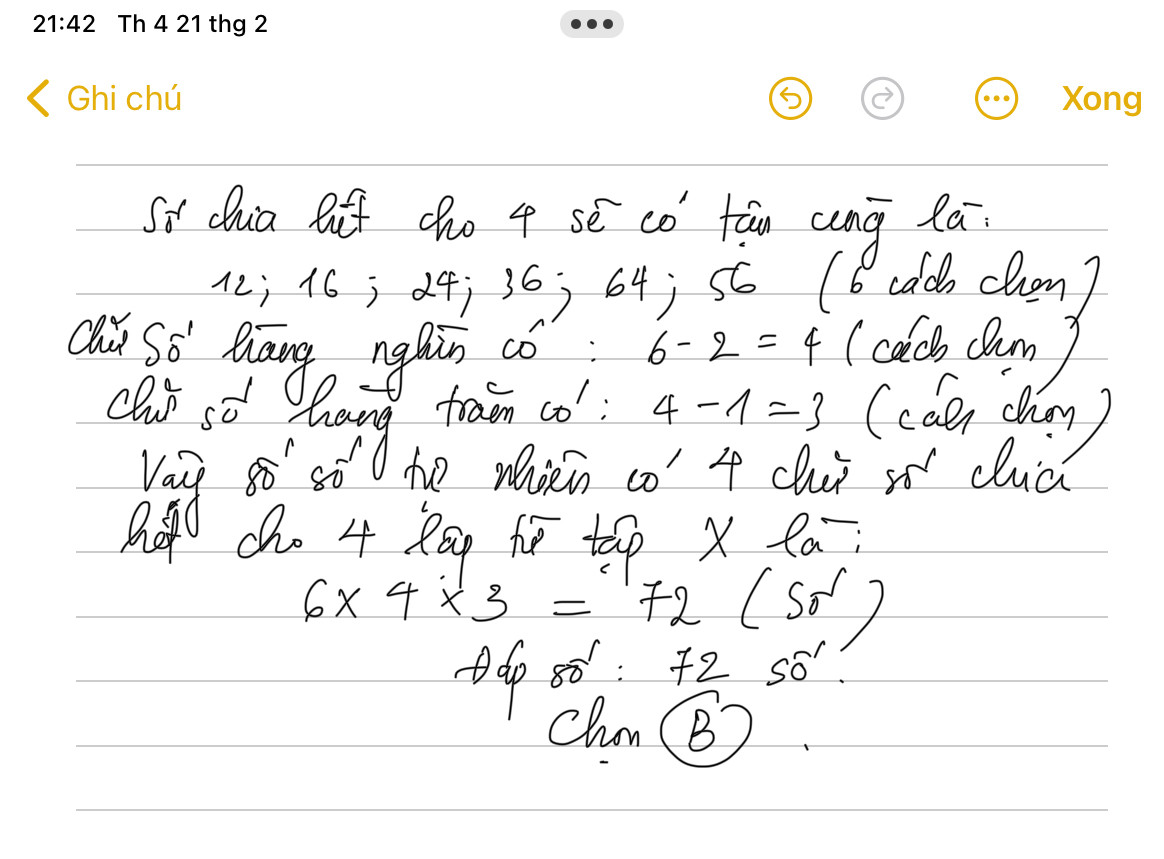 21:42 Th 4 21 thg 2
Ghi chú Xong
Số chia hết cho 4 sẽ có tận cùng là:
12; 16; 24; 36; 64; 56 (6 cách chọn)
Chữ Số hàng nghìn có : 6 - 2 = 4 (cách chọn)
Chữ số hàng trăm có : 4 - 1 = 3 (cách chọn)
Vậy số số tự nhiên có 4 chữ số chia
hết cho 4 lập từ tập X là :
6 x 4 x 3 = 72 (Số)
Đáp số : 72 số.
Chọn B .